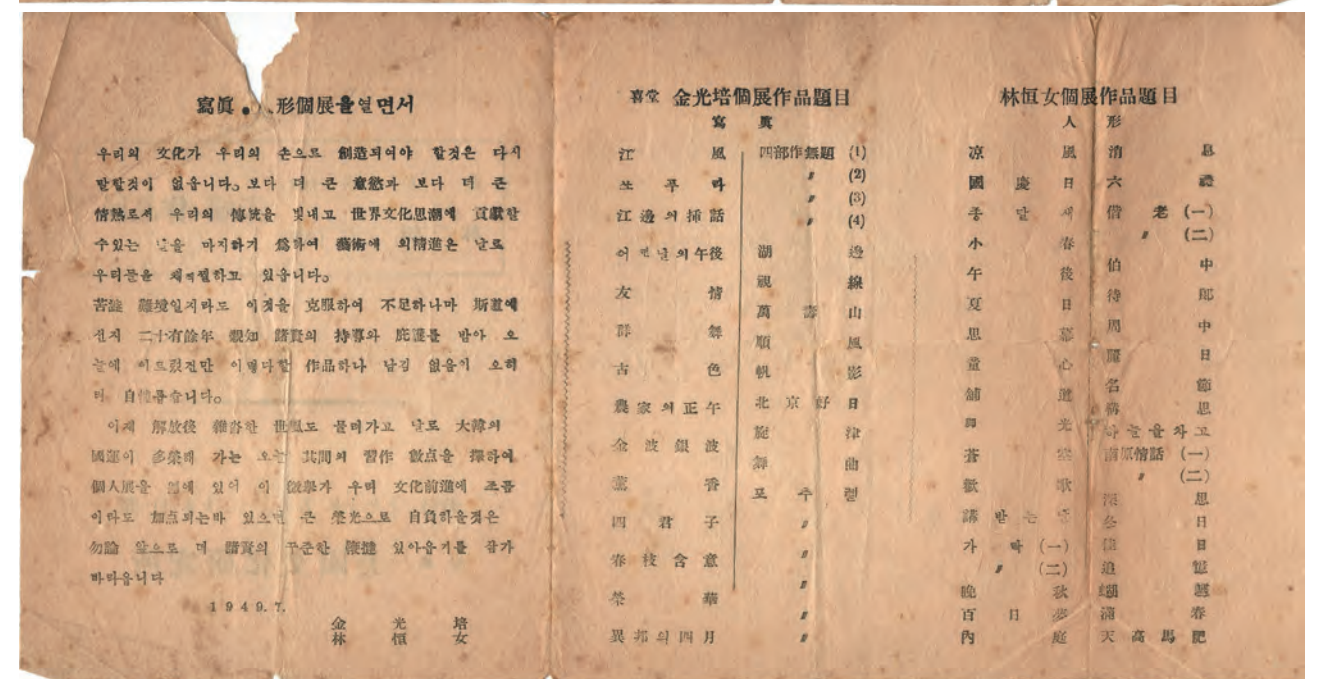 寫眞 • 形個展을열면서
우리의 文化가 우리의 손으로 創造되여야 할것은 다시
말할것이 없읍니다。보다 더 큰 意慾과 보다 더 큰
情熱로서 우리의 傳統을 빛내고 世界文化思潮에 貢獻할
수있는 날을 마지하기 爲하여 藝術에 의精進은 날로
우리들을 채찍질하고 있읍니다。
苦難 難境일지라도 이것을 克服하여 不足하나마 斯道에
선지 二十有餘年 親知 諸賢의 持導와 庇護를 받아 오
늘에 이르렀건만 이렇다할 作品하나 남김 없음이 오히
려 自愧롭습니다。
이제 解放後 雜沓한 世風도 물러가고 날로 大韓의
國運이 多榮해 가는 오늘 其間의 習作 數点을 擇하여
個人展을 열에 있어 이 微擧가 우리 文化前進에 조곰
이라도 加点되는바 있으면 큰 榮光으로 自負하올것은
勿論 앞으로 더 諸賢의 꾸준한 鞭撻 있아옵기를 삼가
바라옵니다
1949.7.
金光培
林恒女
喜堂 金光培個展作品題目
寫眞
江風
쏘푸라
江邊의揷話
어떤날의午後
友情
群舞
古色
農家의正午
金波銀波
薰香
四君子
春枝含意
榮華
異邦의四月
四部作無題 (1)
〃 (2)
〃 (3)
〃 (4)
湖邊
視線
萬壽山
順風
帆影
北京好日
旋律
舞曲
포추렡
〃
〃
〃
〃
林恒女個展作品題目
人形
凉風
國慶日
종달새
小春
午後
夏日
思慕
童心
舖道
圓光
蒼空
歡歌
講받는
가락 (一)
〃 (二)
晩秋
百日
內庭
消息
六禮
偕老 (一)
〃 (二)
伯中
待郎
周中
麗日
名節
構思
하늘을차고
南原情話 (一)
〃 (二)
深思
冬日
佳日
追憶
蝴
滿春
天高馬肥